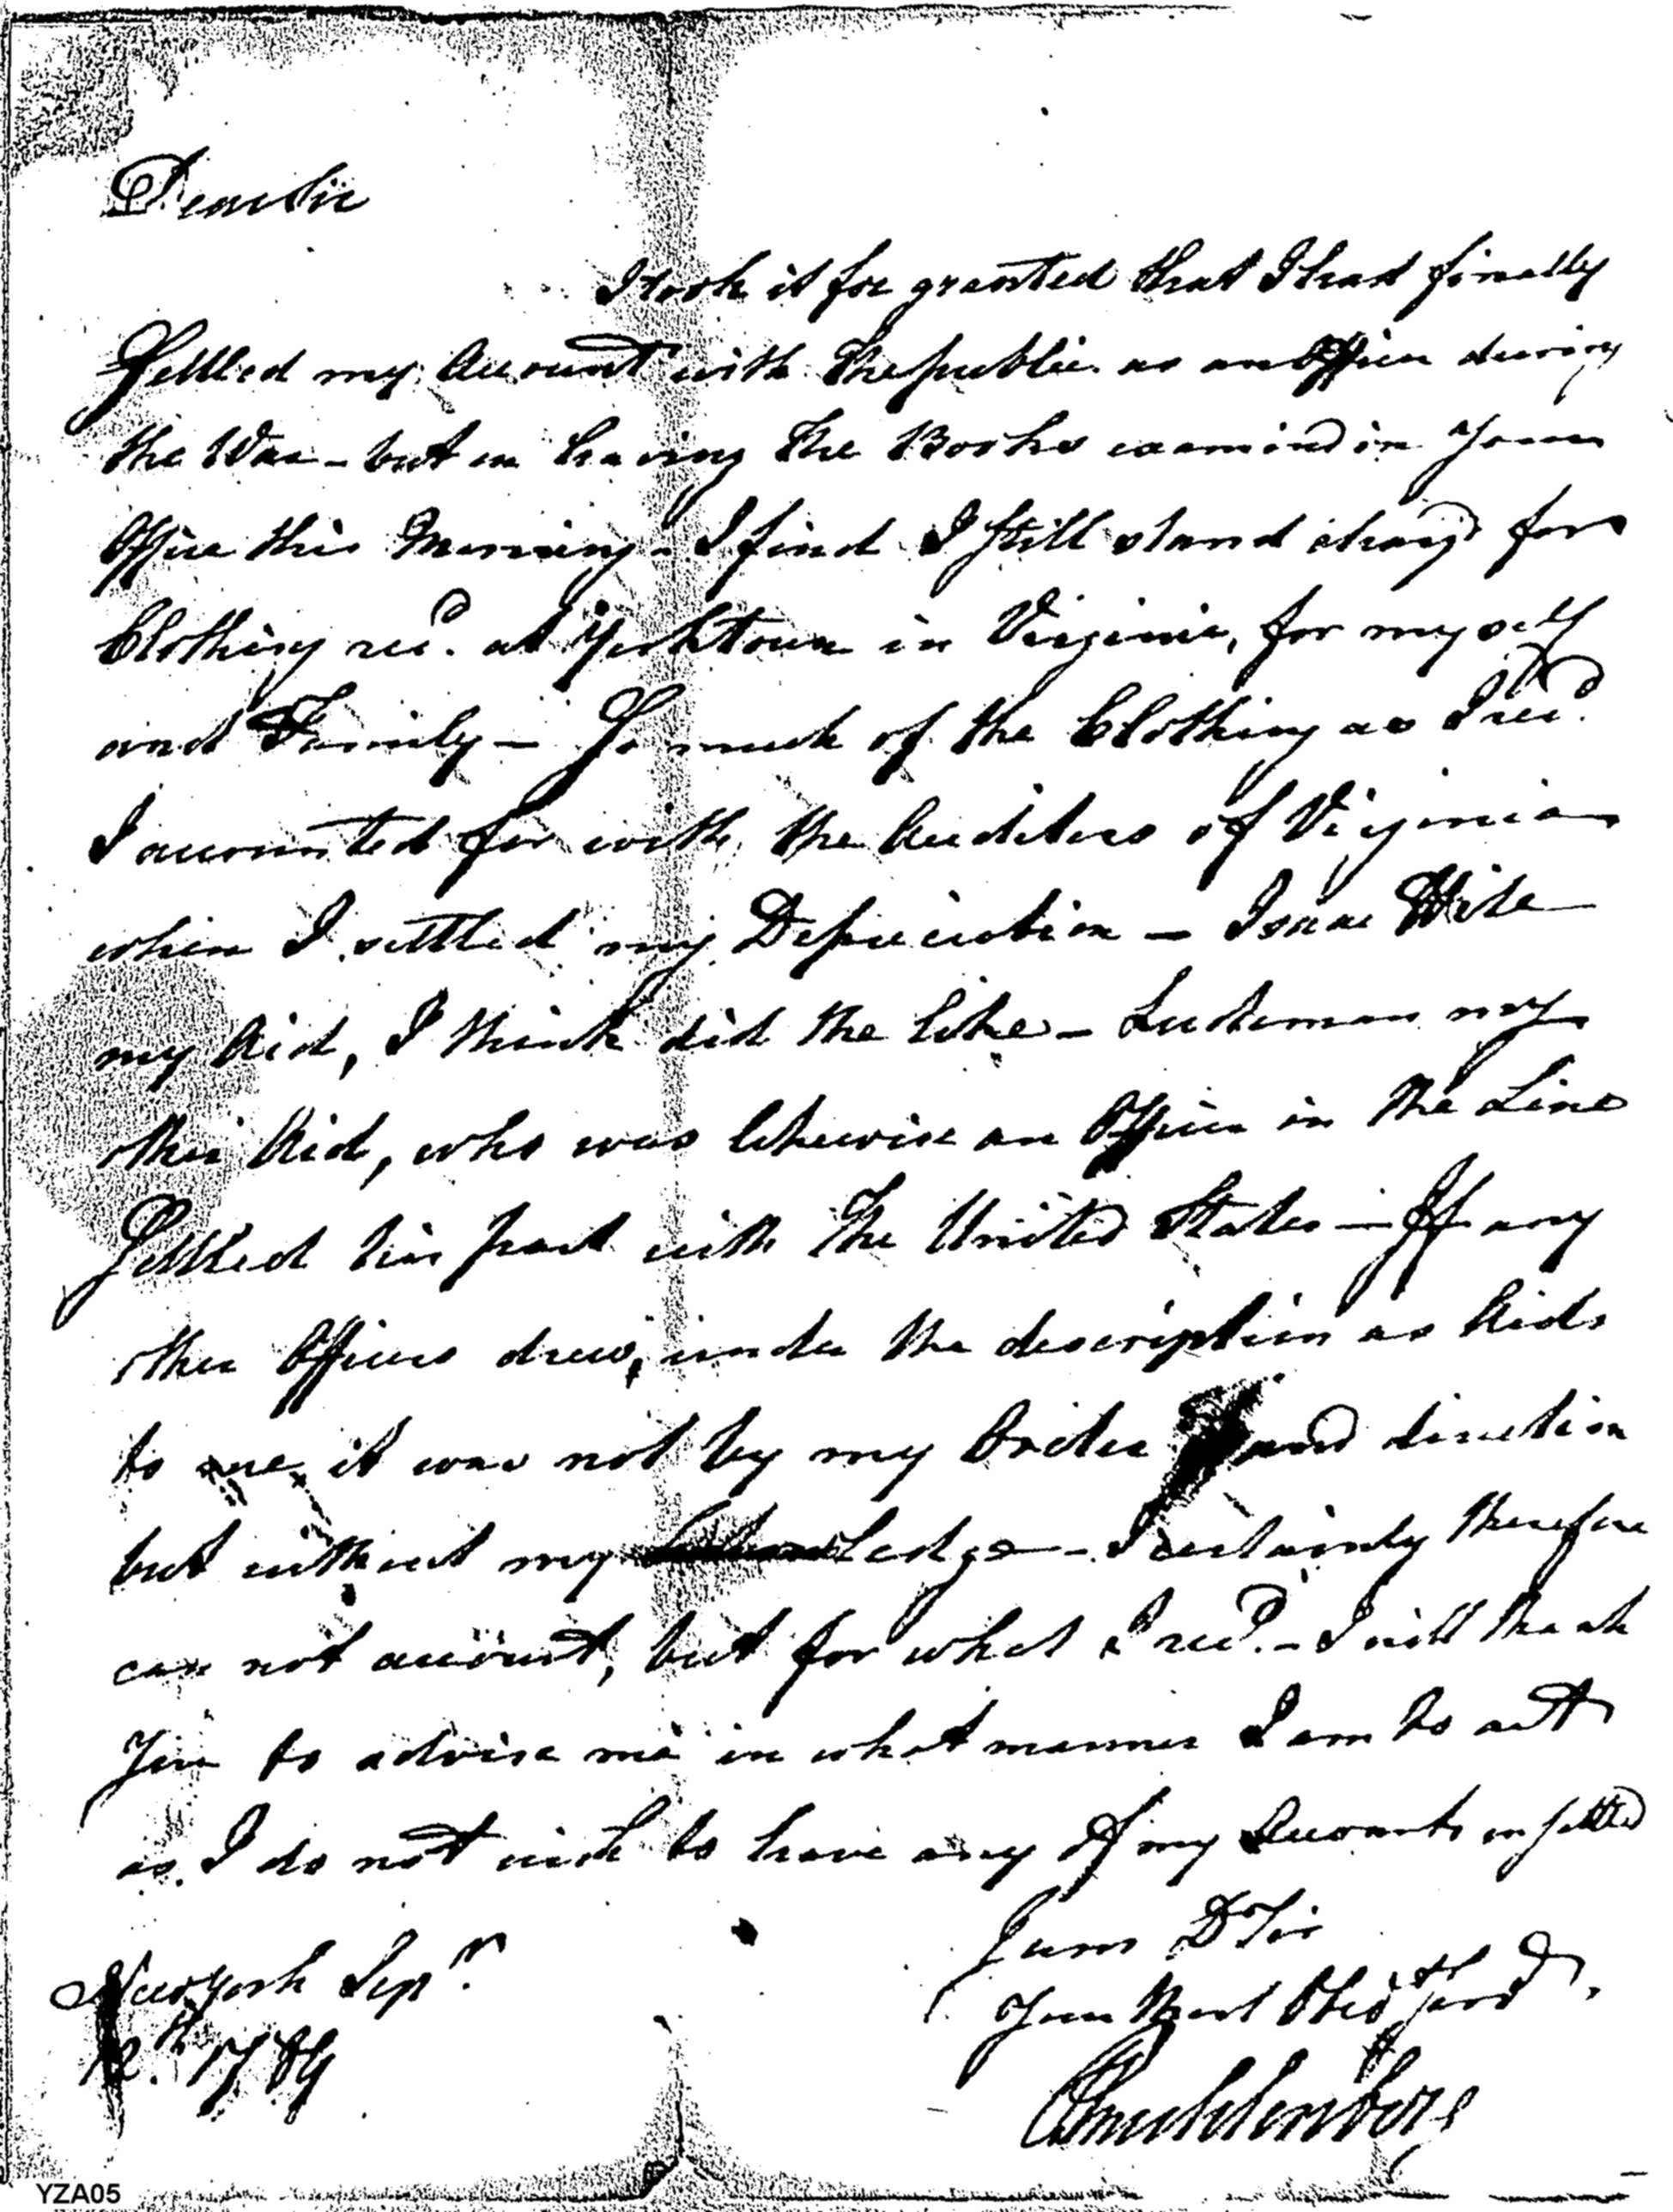 Dear Sir
I took it for granted that I had finally
Settled my Account with the public as an Officer during
the War - but on having the Books examined in Your
Office this Morning - I find I still stand charg'd for
Clothing recd. at Yorktown in Virginia, for myself
and Family - So much of the Clothing as I recd.
I accounted for with the Auditors of Virginia
when I settled my Depreciation - Isaac Hite
my Aid, I think did the like - Ludeman my
other Aid, who was likewise an Officer in the Line
Settled his part with the United States - If any
other Officers drew, under the description as Aids
to me, it was not by my Order and direction
but without my knowledge - I certainly therefore
can not account, but for what I recd. - I will thank
You to advise me in what manner I am to act
as I do not wish to have any of my Accounts unsettled
I am Dr Sir
Your Most Obed Serv
New York Sepr.
12th. 1789
PMuhlenberg
YZA05